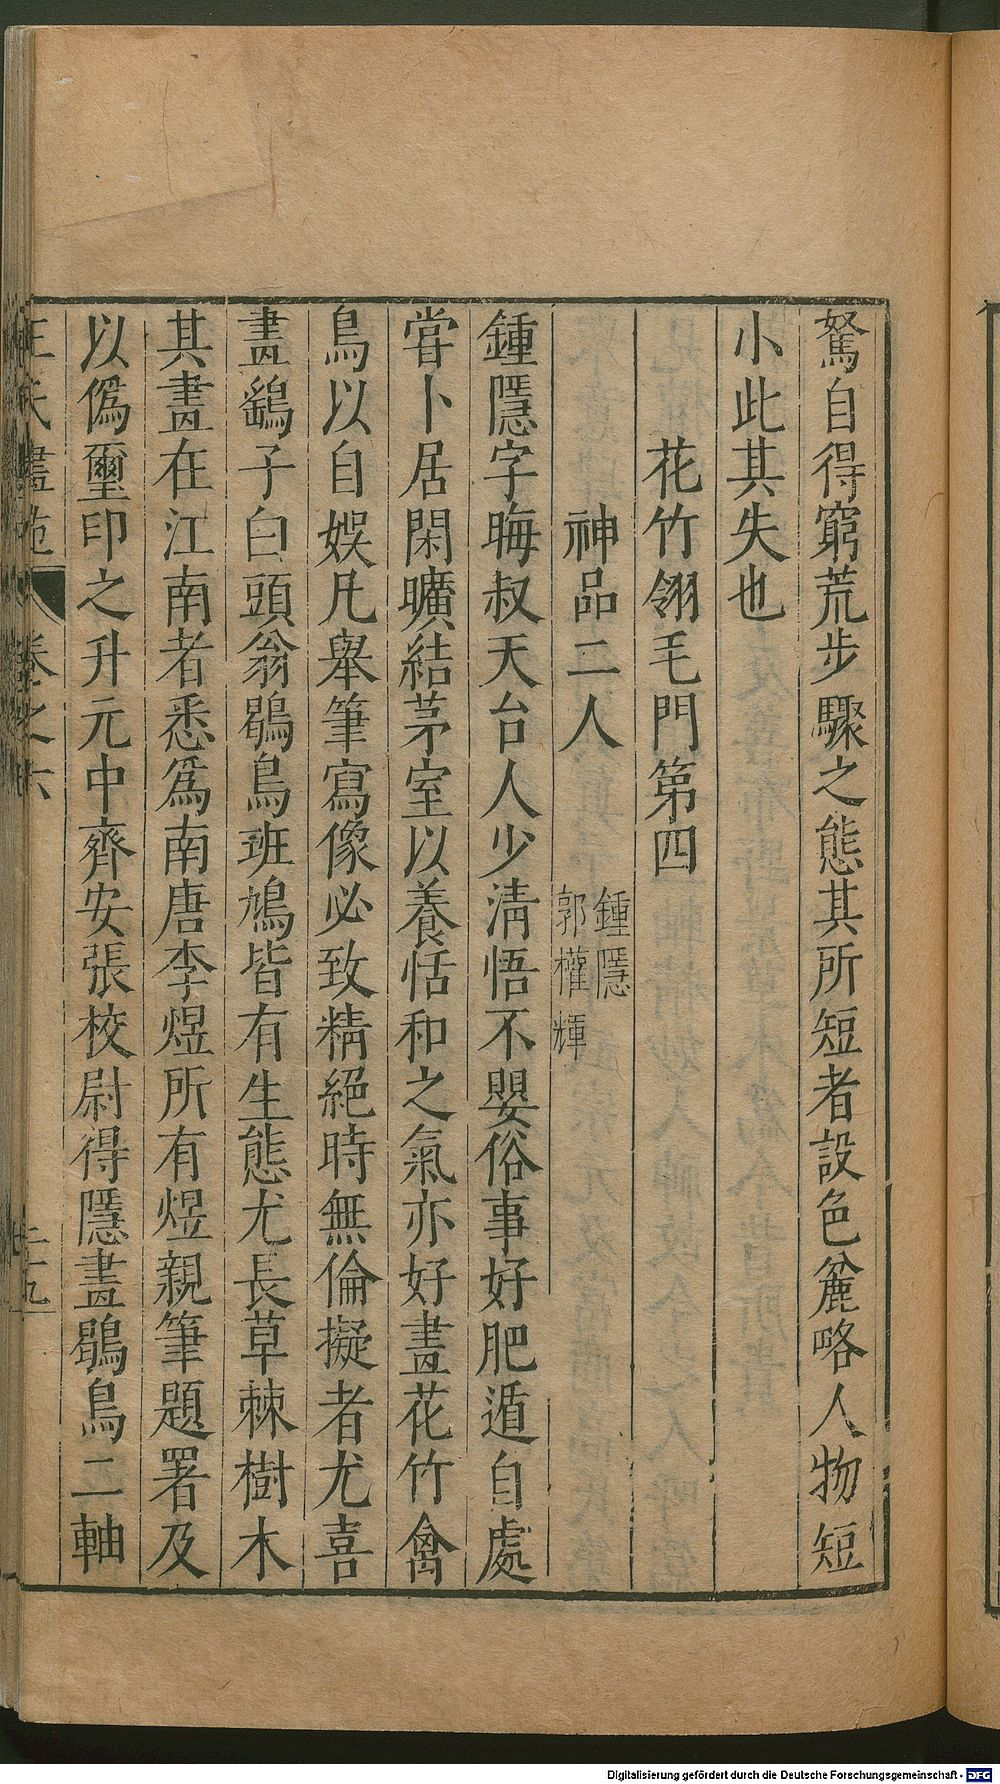 駑自得窮荒步驟之態其所短者設色麄略人物短
小此其失也
花竹翎毛門第四
神品二人
鍾隱
郭權輝
鍾隱字晦叔天台人少清悟不嬰俗事好肥遁自處
甞卜居閑曠結茅室以養恬和之氣亦好畫花竹禽
鳥以自娛凡舉筆寫像必致精絕時無倫擬者尤喜
畫鷂子白頭翁鶡鳥班鳩皆有生態尤長草棘樹木
其畫在江南者悉爲南唐李煜所有煜親筆題署及
以僞璽印之升元中齊安張校尉得隱畫鶡鳥二軸
王氏畫苑
卷之六
二十九
Digitalisierung gefördert durch die Deutsche Forschungsgemeinschaft - DFG